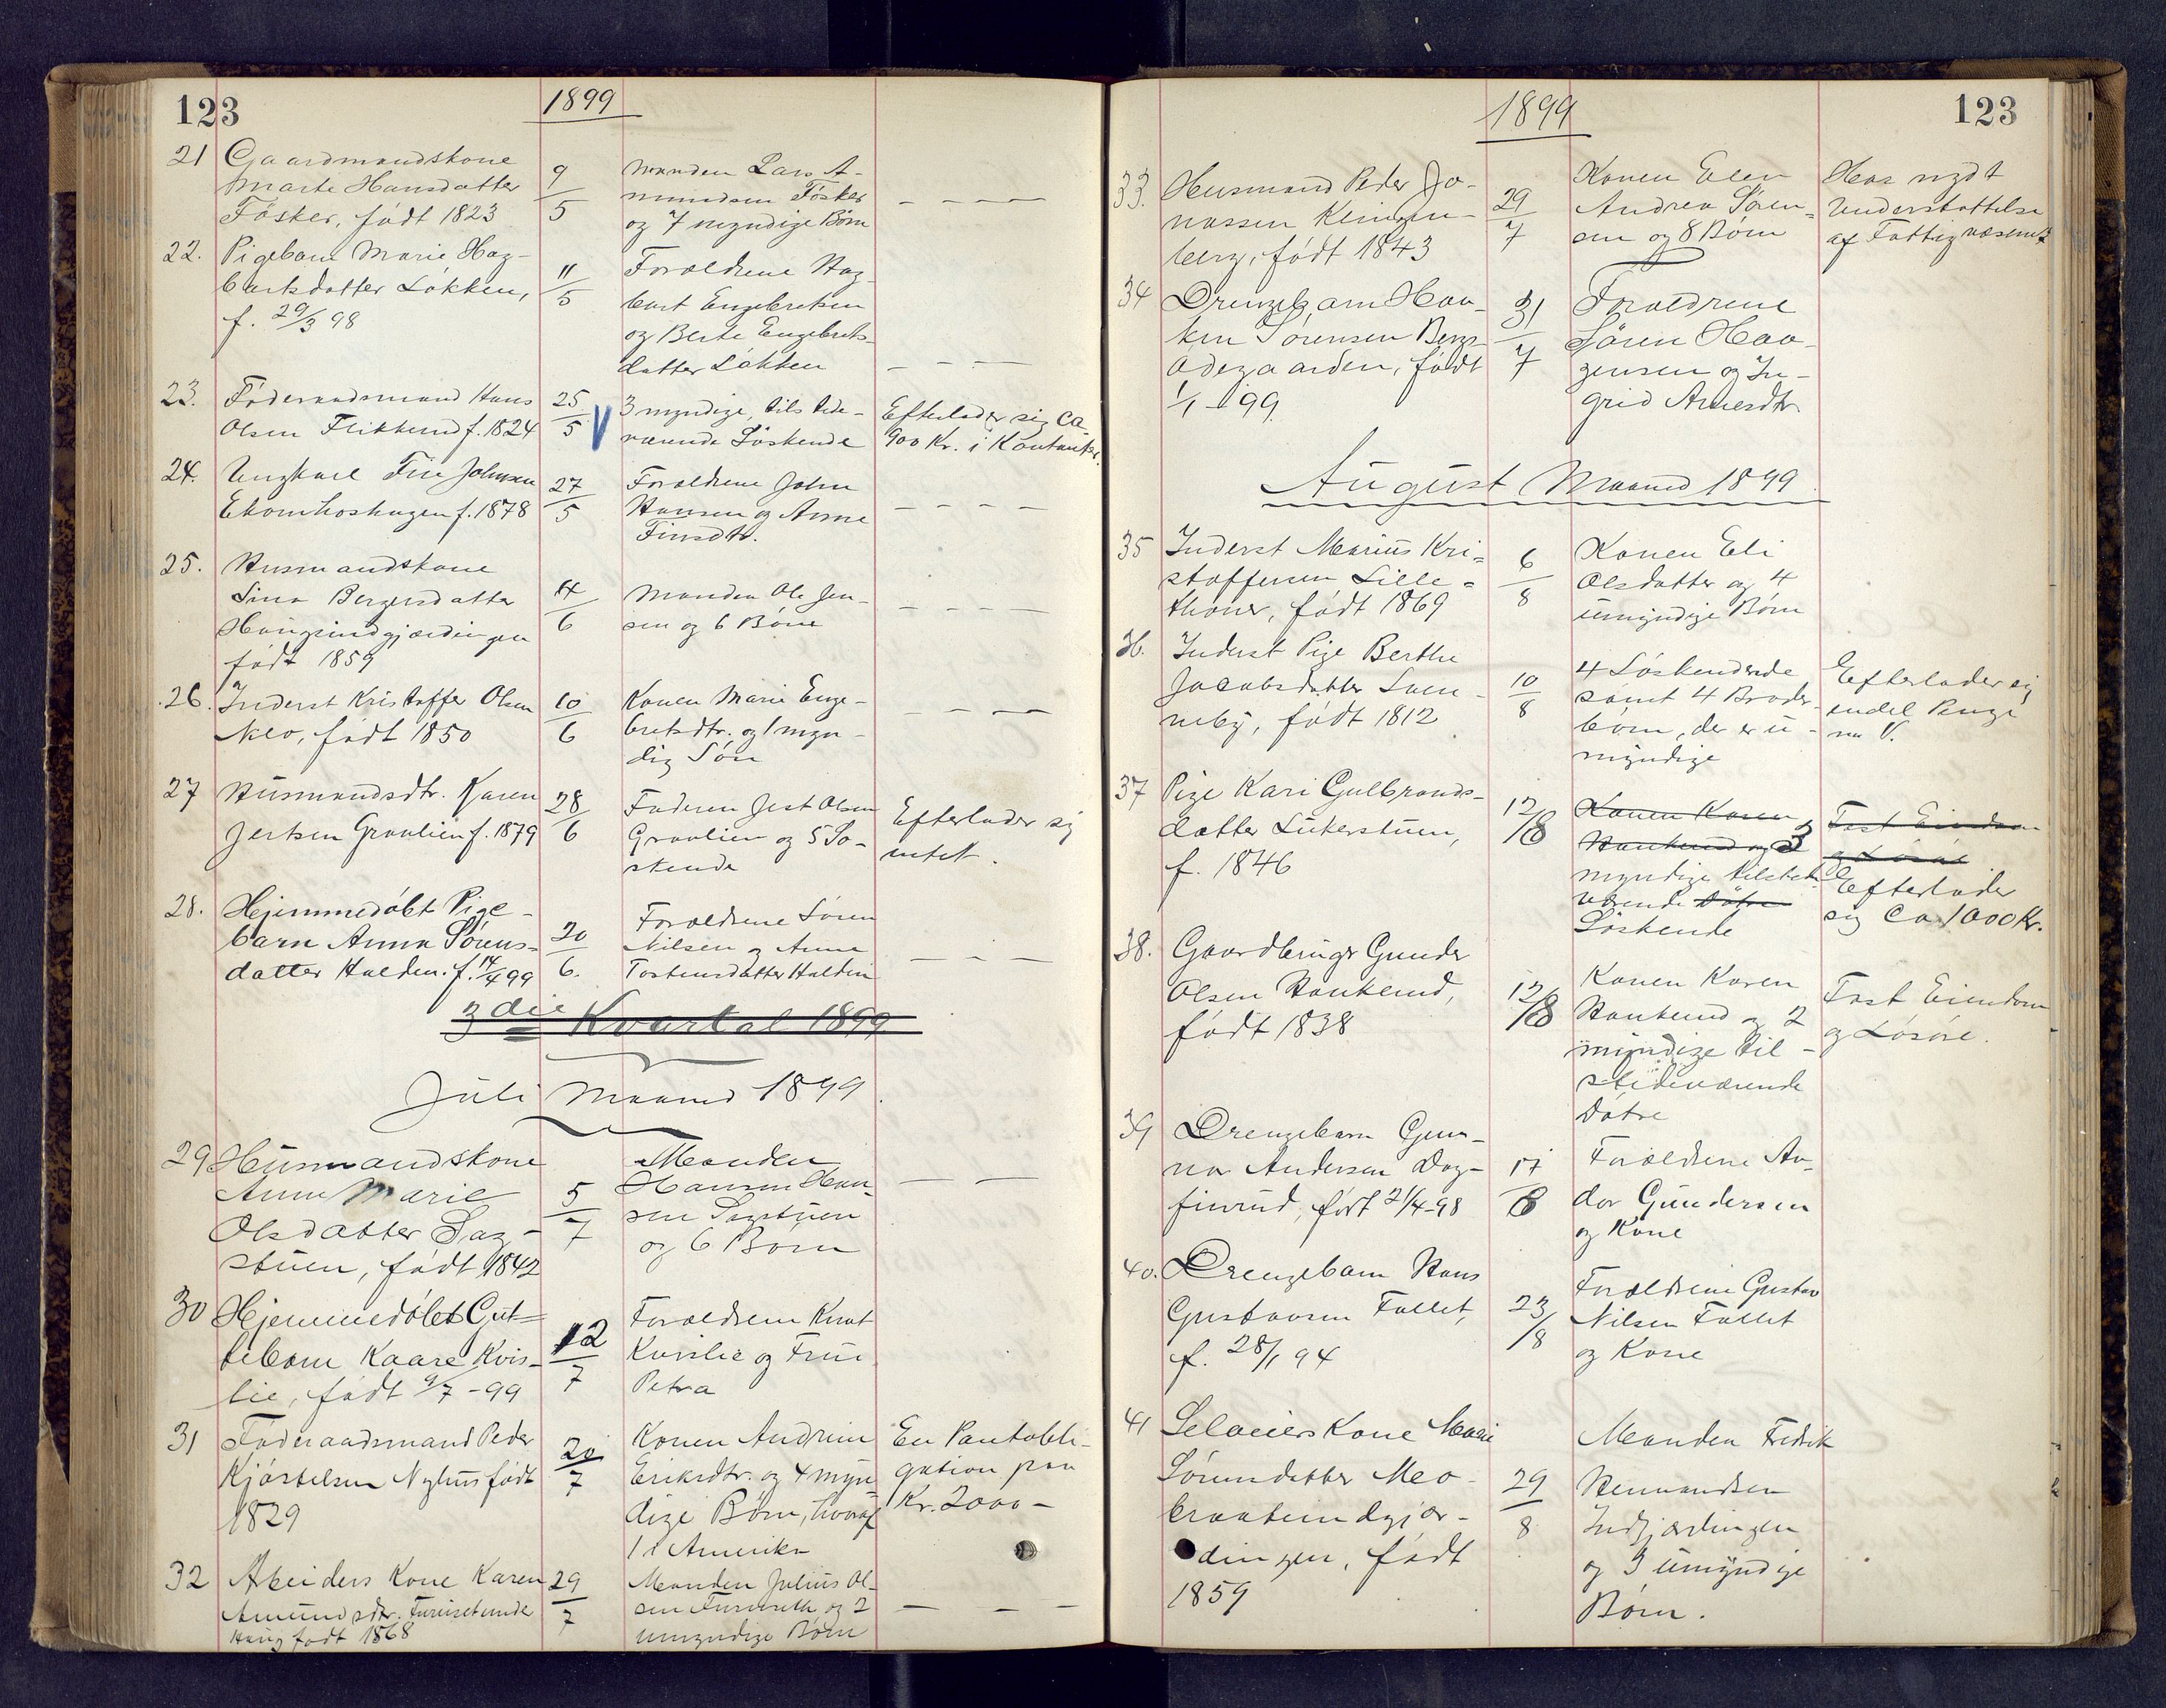 123
1899
21 Gaardmandskone
Marte Hansdatter
Føsker, født 1823
9/5
Manden Lars A-
mundsen Føsker
og 7 myndige Børn
— — — —
22. Pigebarn Marie Hag-
bartsdatter Løkken,
f. 29/3 98
11/5
Forældrene Hag-
bart Engebretsen
og Berte Engebrets-
datter Løkken
— — —
23. Føderaadsmand Hans
Olsen Flikkerud f. 1824
25/5
3 myndige, tilstede-
værende Søskende
Efterlader sig ca.
900 Kr. i Kontanter.
24. Ungkarl Fin Johnsen
Ekornhoshagen f. 1878
27/5
Forældrene John
Hansen og Anne
Finsdtr.
— — — —
25. Husmandskone
Sina Bergersdatter
Haugsindgjærdingen
født 1859
4/6
Manden Ole Jen-
sen og 6 Børn
— — — —
26. Inderst Kristoffer Olsen
Klo, født 1850
10/6
Konen Marie Enge-
bretsdtr. og 1 myn-
dig Søn
— — —
27 Husmandsdtr. Karen
Jertsen Graalien f. 1879
28/6
Faderen Jert Olsen
Graalien og 5 Sø-
skende
Efterlader sig
intet.
28. Hjemmedøbt Pige-
barn Anna Sørens-
datter Halden. f. 14/4 99
20/6.
Forældrene Søren
Nilsen og Anna
Tostensdatter Halden
— — — —
3die Kvartal 1899
Juli Maaned 1899.
29 Husmandskone
Anne Marie
Olsdatter Sag-
stuen, født 1842
5/7
Manden
Hansen Han-
sen Sagstuen
og 6 Børn
— — —
30 Hjemmedøbt Gut-
tebarn Kaare Kvis-
lie, født 9/7 -99
12/7
Forældrene Knut
Kvislie og Frue
Petra
31 Føderaadsmand Peder
Kjøstelsen Nyhus født
1829
20/7
Konen Andrine
Eriksdtr. og 4 myn
dige Børn, hvoraf
1 i Amerika
En Pantobli-
gation paa
Kr. 2000 -
32 Arbeiders Kone Karen
Amundsdtr. Furuset under
Haug født 1868
29/7
Manden Julius Ol-
sen Furuseth og 2
umyndige Børn
— — —
1899
123
33. Husmand Peder Jo-
nassen Klingen-
berg, født 1843
29/7
Konen Elen
Andrea Søren-
sen og 8 Børn
Har nydt
Understøttelse
af Fattigvæsenet
34 Drengebarn Haa-
kon Sørensen Bergs-
ødegaarden, født
1/1 -99
31/7
Forældrene
Søren Haa-
gensen og In-
grid Arnesdtr.
August Maaned 1899
35 Inderst Marius Kri-
stoffersen Lille-
thoner, født 1869
6/8
Konen Eli
Olsdatter og 4
umyndige Børn
36. Inderst Pige Berthe
Jacobsdatter Sven-
neby, født 1812
10/8
4 Søskende
samt 4 Broder-
børn, der er u-
myndige
Efterlader sig
endel Penge
m. V.
37 Pige Kari Gulbrands-
datter Lukerstuen,
f. 1846
12/8
Konen Karen
Haukerud og 3
myndige tilstede
værende Døtre
Søskende
Fast Eiendom
og Løsøre
Efterlader
sig ca 1000 Kr.
38. Gaardbruger Gunder
Olsen Haukerud,
født 1838
12/8
Konen Karen
Haukerud og 2
myndige til-
stedeværende
Døtre
Fast Eiendom
og Løsøre.
39 Drengebarn Gun-
nar Andersen Dag-
finrud, født 21/4-98
17/8
Forældrene An-
dor Gundersen
og Kone
40. Drengebarn Hans
Gustavsen Fallet,
f. 28/1 94
23/8
Forældrene Gustav
Nilsen Fallet
og Kone
41 Selveiers Kone Marie
Sørensdatter Meo-
braateindgjær-
dingen, født
1859
29/8
Manden Fredrik
Hermandsen
Indgjærdingen
og 3 umyndige
Børn.